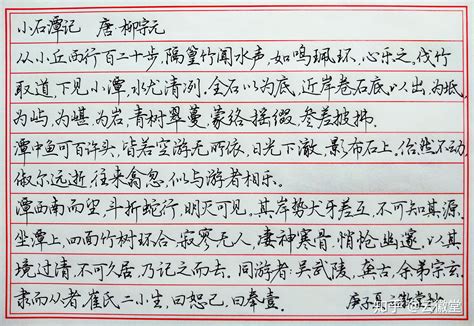 小石潭记 唐·柳宗元
从小丘西行百二十步，隔篁竹闻水声，如鸣珮环，心乐之，伐竹
取道，下见小潭，水尤清冽。全石以为底，近岸卷石底以出，为坻、
为屿、为嵁、为岩，青树翠蔓，蒙络摇缀，参差披拂。
潭中鱼可百许头，皆若空游无所依，日光下澈，影布石上。佁然不动，
俶尔远逝，往来翕忽，似与游者相乐。
潭西南而望，斗折蛇行，明灭可见。其岸势犬牙差互，不可知其源。
坐潭上，四面竹树环合，寂寥无人，凄神寒骨，悄怆幽邃。以其
境过清，不可久居，乃记之而去。同游者：吴武陵，龚古，余弟宗玄。
隶而从者，崔氏二小生：曰恕己，曰奉壹。
知乎